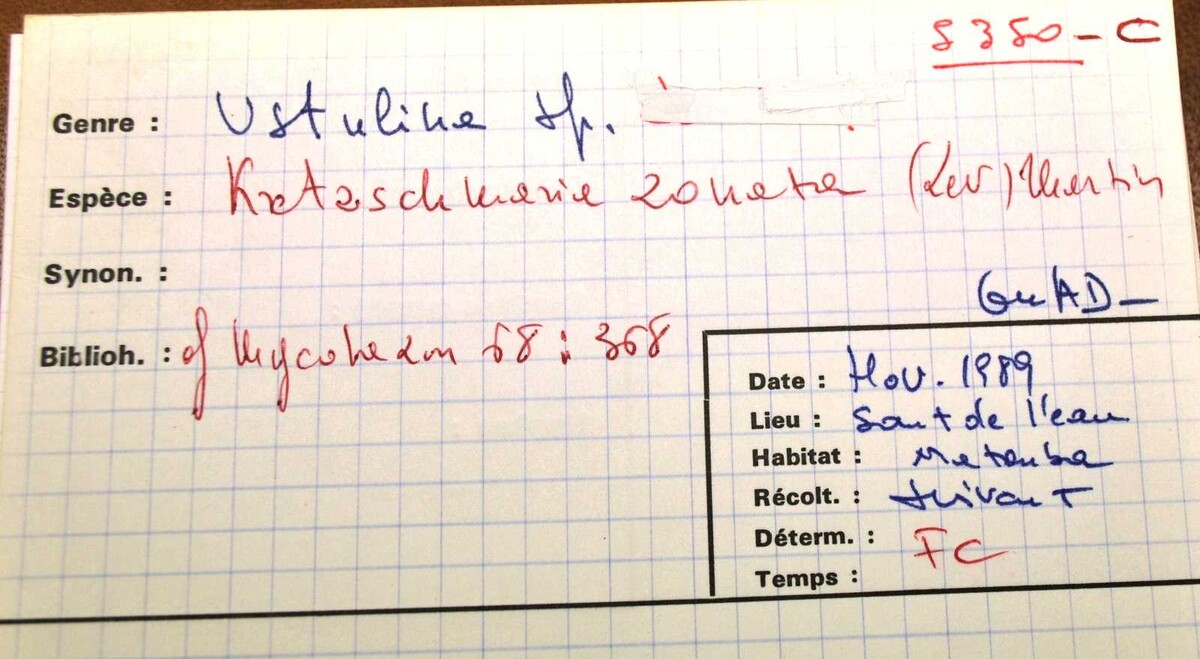 5350-C
Genre : Ustulina sp.
Espèce : Kretzschmaria zonata (Lev) Martin
Synon. :
GuAD-
Biblioh. : cf Mycotaxon 68 : 368
Date : Nov. 1989
Lieu : Saut de l'eau
Habitat : Matouba
Récolt. :
Déterm. : FC
Temps :